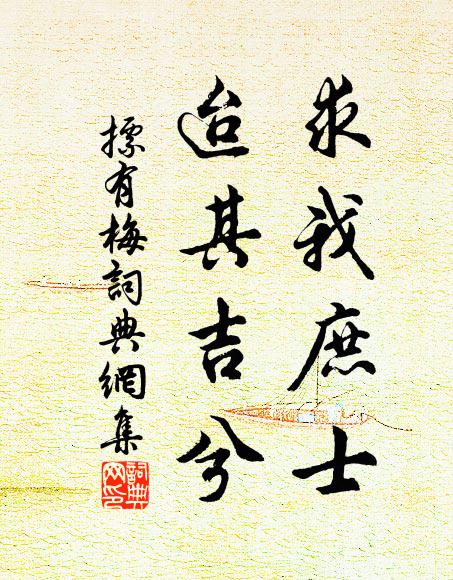 求我庶士
迨其吉兮
摽有梅詞典網集
詞典网印